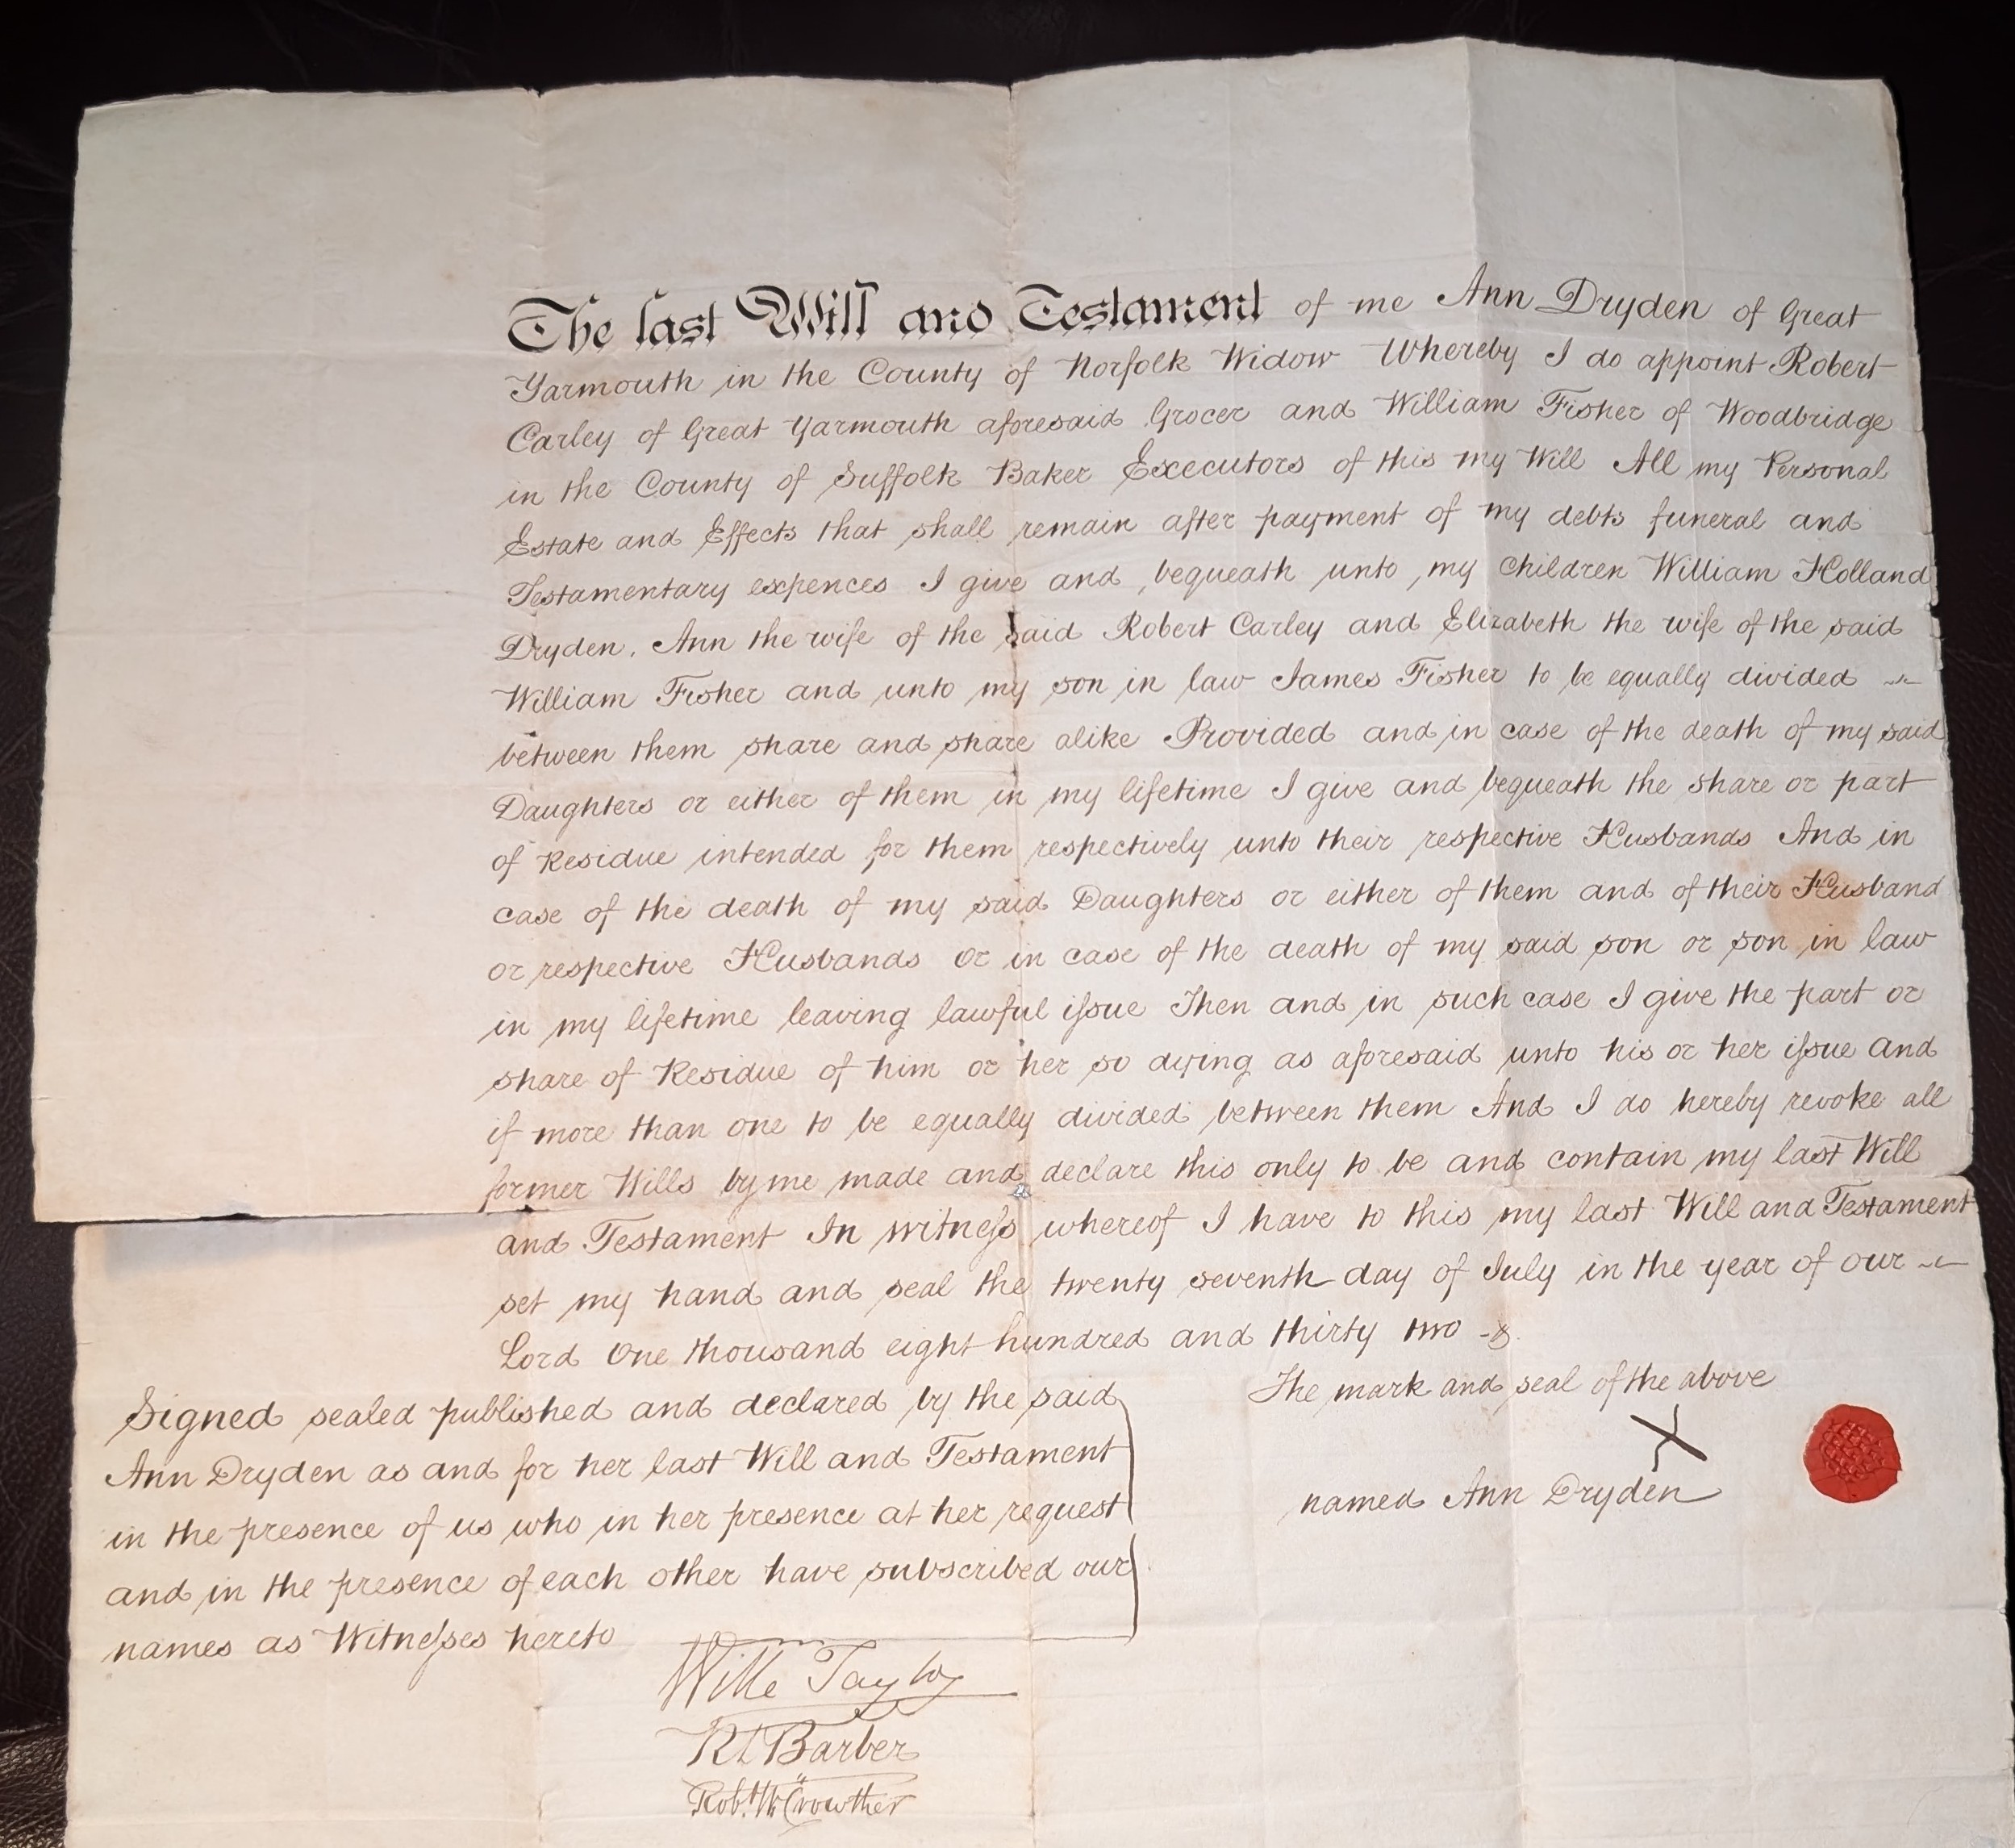 The last Will and Testament of me Ann Dryden of Great
Yarmouth in the County of Norfolk Widow Whereby I do appoint Robert
Carley of Great Yarmouth aforesaid Grocer and William Fisher of Woodbridge
in the County of Suffolk Baker Executors of this my Will All my Personal
Estate and Effects that shall remain after payment of my debts funeral and
Testamentary expences I give and bequeath unto my children William Holland
Dryden, Ann the wife of the said Robert Carley and Elizabeth the wife of the said
William Fisher and unto my son in law James Fisher to be equally divided
between them share and share alike Provided and in case of the death of my said
Daughters or either of them in my lifetime I give and bequeath the share or part
of Residue intended for them respectively unto their respective Husbands And in
case of the death of my said Daughters or either of them and of their Husband
or respective Husbands Or in case of the death of my said son or son in law
in my lifetime leaving lawful issue Then and in such case I give the part or
share of Residue of him or her so dying as aforesaid unto his or her issue and
if more than one to be equally divided between them And I do hereby revoke all
former Wills by me made and declare this only to be and contain my last Will
and Testament In witness whereof I have to this my last Will and Testament
set my hand and seal the twenty seventh day of July in the year of our
Lord One thousand eight hundred and thirty two
Signed sealed published and declared by the said
Ann Dryden as and for her last Will and Testament
in the presence of us who in her presence at her request
and in the presence of each other have subscribed our
names as Witnesses hereto
The mark and seal of the above
X
named Ann Dryden
Taylor
Barber
Robt Crowther